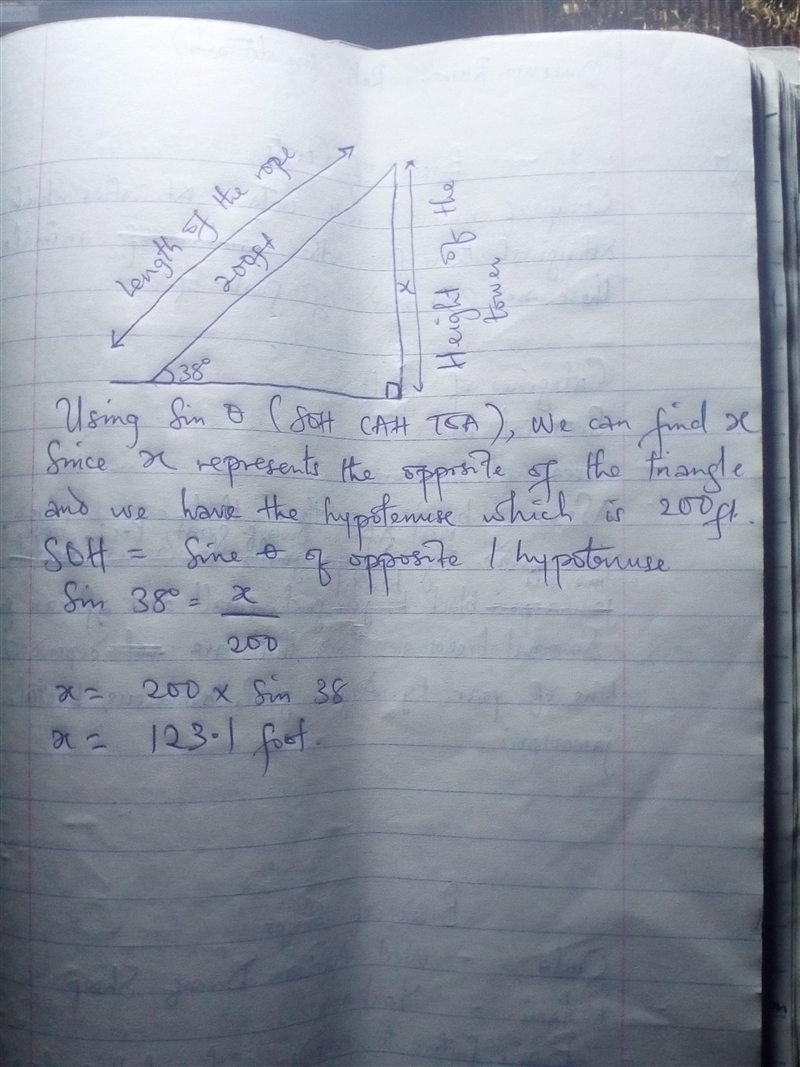 Length of the rope
200ft
x
Height of the
tower
38°
Using Sin θ (SOH CAH TOA), we can find x
Since x represents the opposite of the triangle
and we have the hypotenuse which is 200ft.
SOH = Sine θ of opposite / hypotenuse
Sin 38° = x
200
x = 200 x Sin 38
x = 123.1 foot.